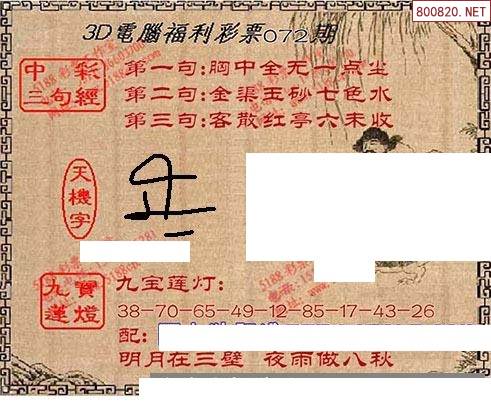 800820.NET
3D電腦福利彩票072期
中彩
三句經
第一句:胸中全无一点尘
第二句:金渠玉砂七色水
第三句:客散红亭六未收
天機字
九寶蓮燈
九宝莲灯:
38-70-65-49-12-85-17-43-26
配:
明月在三壁 夜雨做八秋